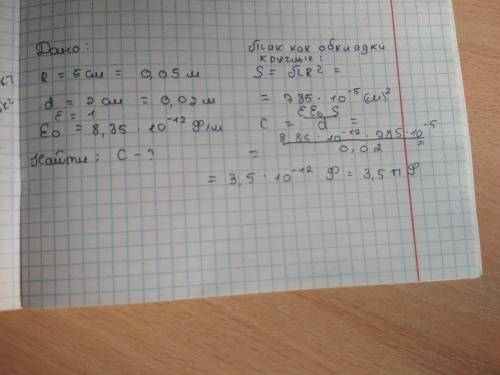 Дано:
R = 5 см = 0,05 м
d = 2 см = 0,02 м
ε = 1
ε₀ = 8,85 · 10⁻¹² Ф/м
Найти: C - ?
так как обкладки
круглые:
S = πR² =
= 785 · 10⁻⁵ (м)²
C = εε₀S / d =
= 8,85 · 10⁻¹² · 785 · 10⁻⁵ / 0,02 =
= 3,5 · 10⁻¹² Ф = 3,5 пФ